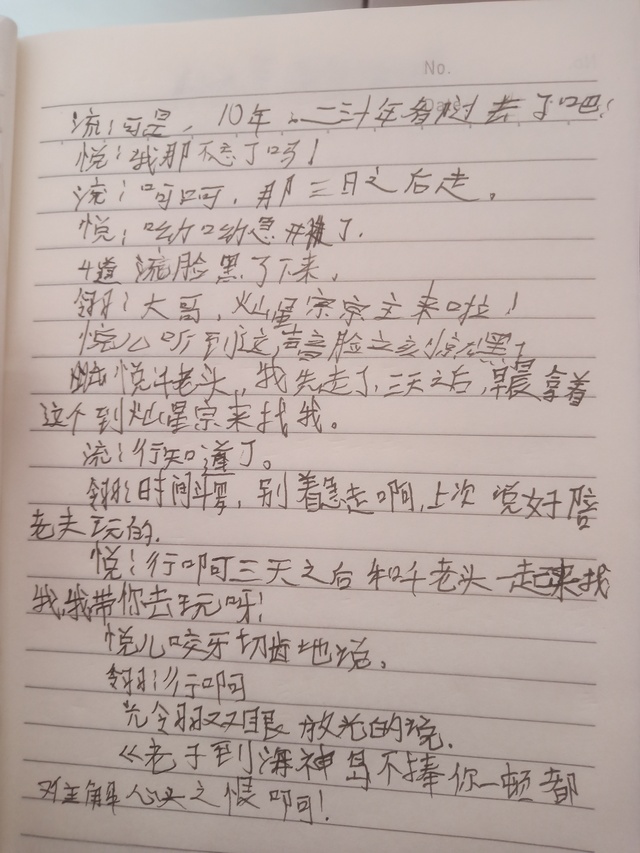 No.
Date
流:可是,10年、二三十年都过去了吧!
悦:我那不忘了吗!
流:呵呵,那三日之后走。
悦:呦呦急了.
4道流脸黑了下来.
翎:大哥,灿星宗宗主来啦!
悦儿听到这声音脸立刻就黑了
悦:千老头,我先走了,三天之后,早晨拿着
这个到灿星宗来找我。
流:行知道了。
翎:时间斗罗,别着急走啊,上次说好陪
老夫玩的.
悦:行啊三天之后和千老头一起来找
我,我带你去玩呀!
悦儿咬牙切齿地说.
翎:行啊
光翎双眼放光的说.
《老子到海神岛不揍你一顿都
对解心头之恨啊!